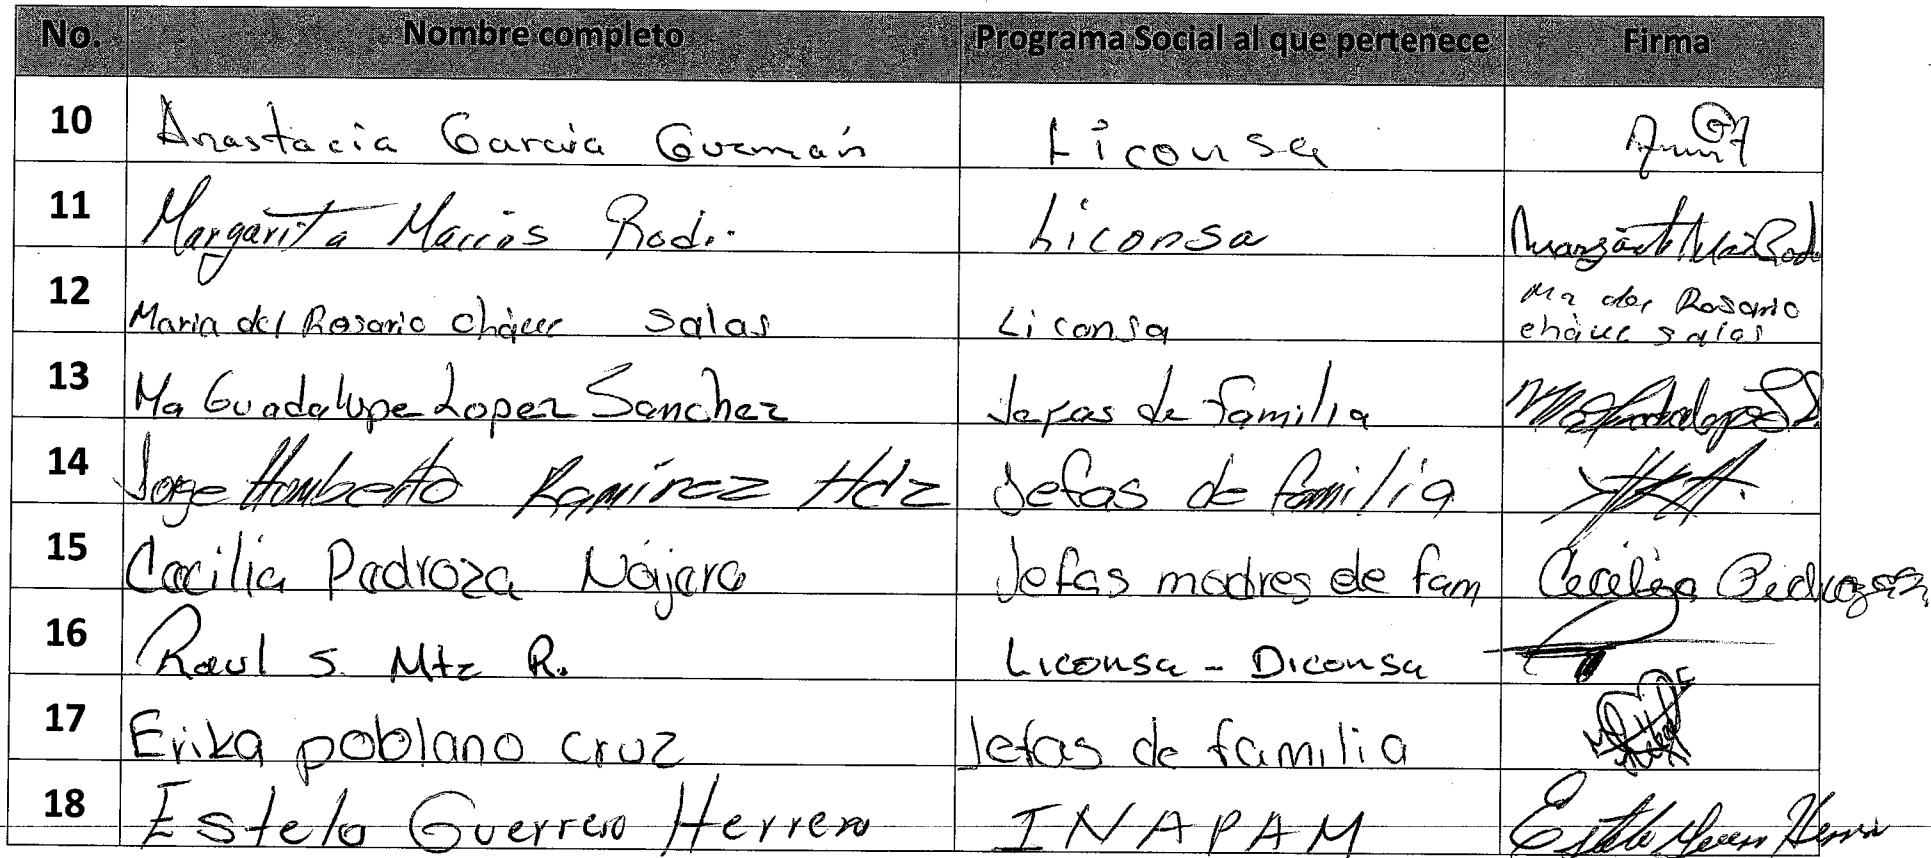 No. Nombre completo Programa Social al que pertenece Firma
10 Anastacia Garcia Guzmán Liconsa
11 Margarita Macias Rodr. Liconsa
12 Maria del Rosario chávez salas Liconsa Ma del Rosario
chávez salas
13 Ma Guadalupe Lopez Sanchez Jefas de familia
14 Jorge Humberto Ramírez Hdz Jefas de familia
15 Cecilia Pedroza Nájera Jefas madres de fam Cecilia Pedroza
16 Raul S. Mtz R. Liconsa - Diconsa
17 Erika poblano cruz Jefas de familia
18 Estela Guerrero Herrera INAPAM